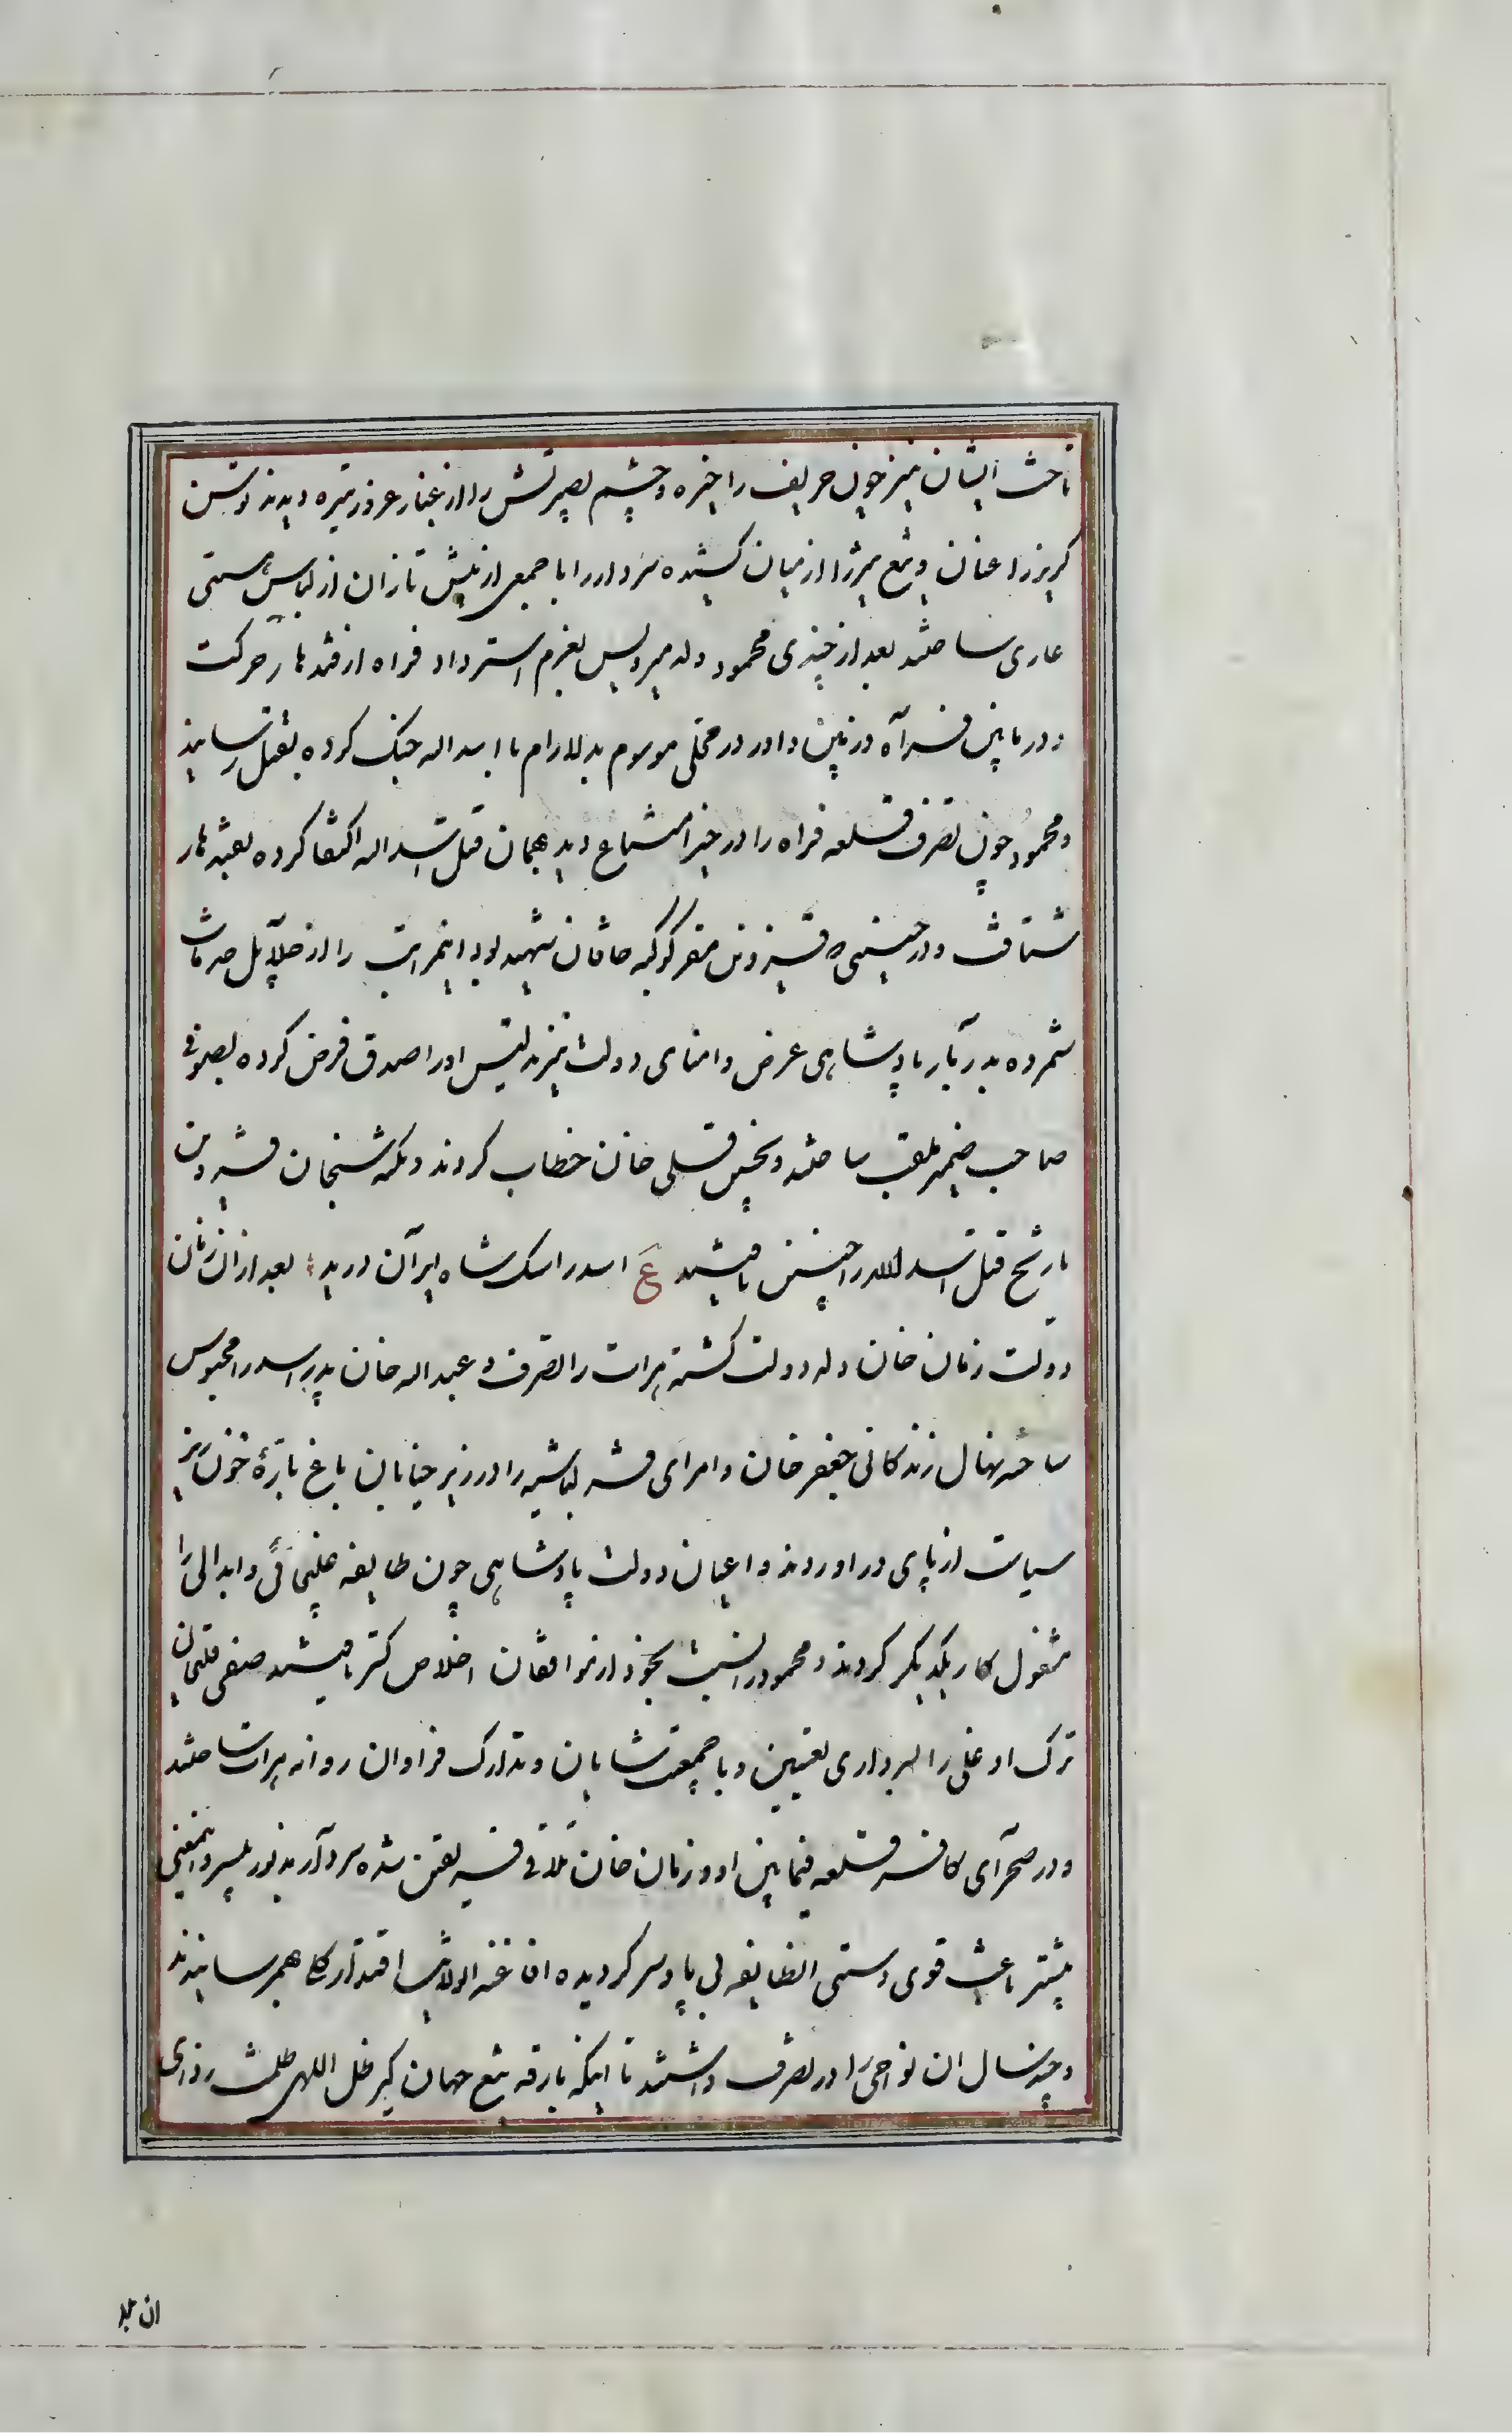 تاخت ایشان نیز چون حریف را خیره و چشم بصیرتش را از غبار غرور تیره دیدند توسن
کریز را عنان و تیغ تیز را از میان کشیده سردار را با جمعی از پیش تازان از لباس هستی
عاری ساختند بعد از چندی محمود ولد میرویس بعزم استرداد فراه از قندهار حرکت
و در مابین فراه و زمین داور در محلی موسوم بدلارام با اسداله جنک کرده بقتل رسانید
و محمود چون تصرف قلعه فراه را در حیز امتناع دید بهمان قتل اسداله اکتفا کرده بقندهار
شتافت و در حینی که قزوین مقر کوکبه خاقان شهید بود اینمراتب را از دلایل خدمات
شمرده بدربار پادشاهی عرض و امنای دولت نیز تدلیس او را صدق فرض کرده بصوفی
صاحب ضمیر ملقب ساخته و بحسین قلی خان خطاب کردند و نکته سنجان قزوین
تاریخ قتل اسدالله را چنین یافتند ع اسد را سک شاه ایران درید بعد از ان زمان
دولت زمان خان ولد دولت کشته هرات را تصرف و عبداله خان پدر اسد را محبوس
ساخته نهال زندکانی جعفر خان و امرای قزلباشیه را در زیر خیابان باغ باره خون ریز
سیاست از پای در اوردند و اعیان دولت پادشاهی چون طایفه غلیجائی و ابدالی را
مشغول کار یکدیکر کردند و محمود را نسبت بخود از موافقان اخلاص کستر یافتند صفی قلیخان
ترک اوغلی را بسرداری تعیین و با جمعیت شایان و تدارک فراوان روانه هرات ساختند
و در صحرای کافر قلعه فیما بین او و زمان خان تلاقی فریقین شده سردار مذبور با پسر و اینمعنی
بیشتر باعث قوی دستی انطایفه بی پا و سر کردیده افاغنه انولایت اقتدار کلی بهمرسانیدند
و چند سال ان نواحی را در تصرف داشتند تا اینکه بارقه تیغ جهان کیر ظل اللهی ظلمت زدای
ان بلا